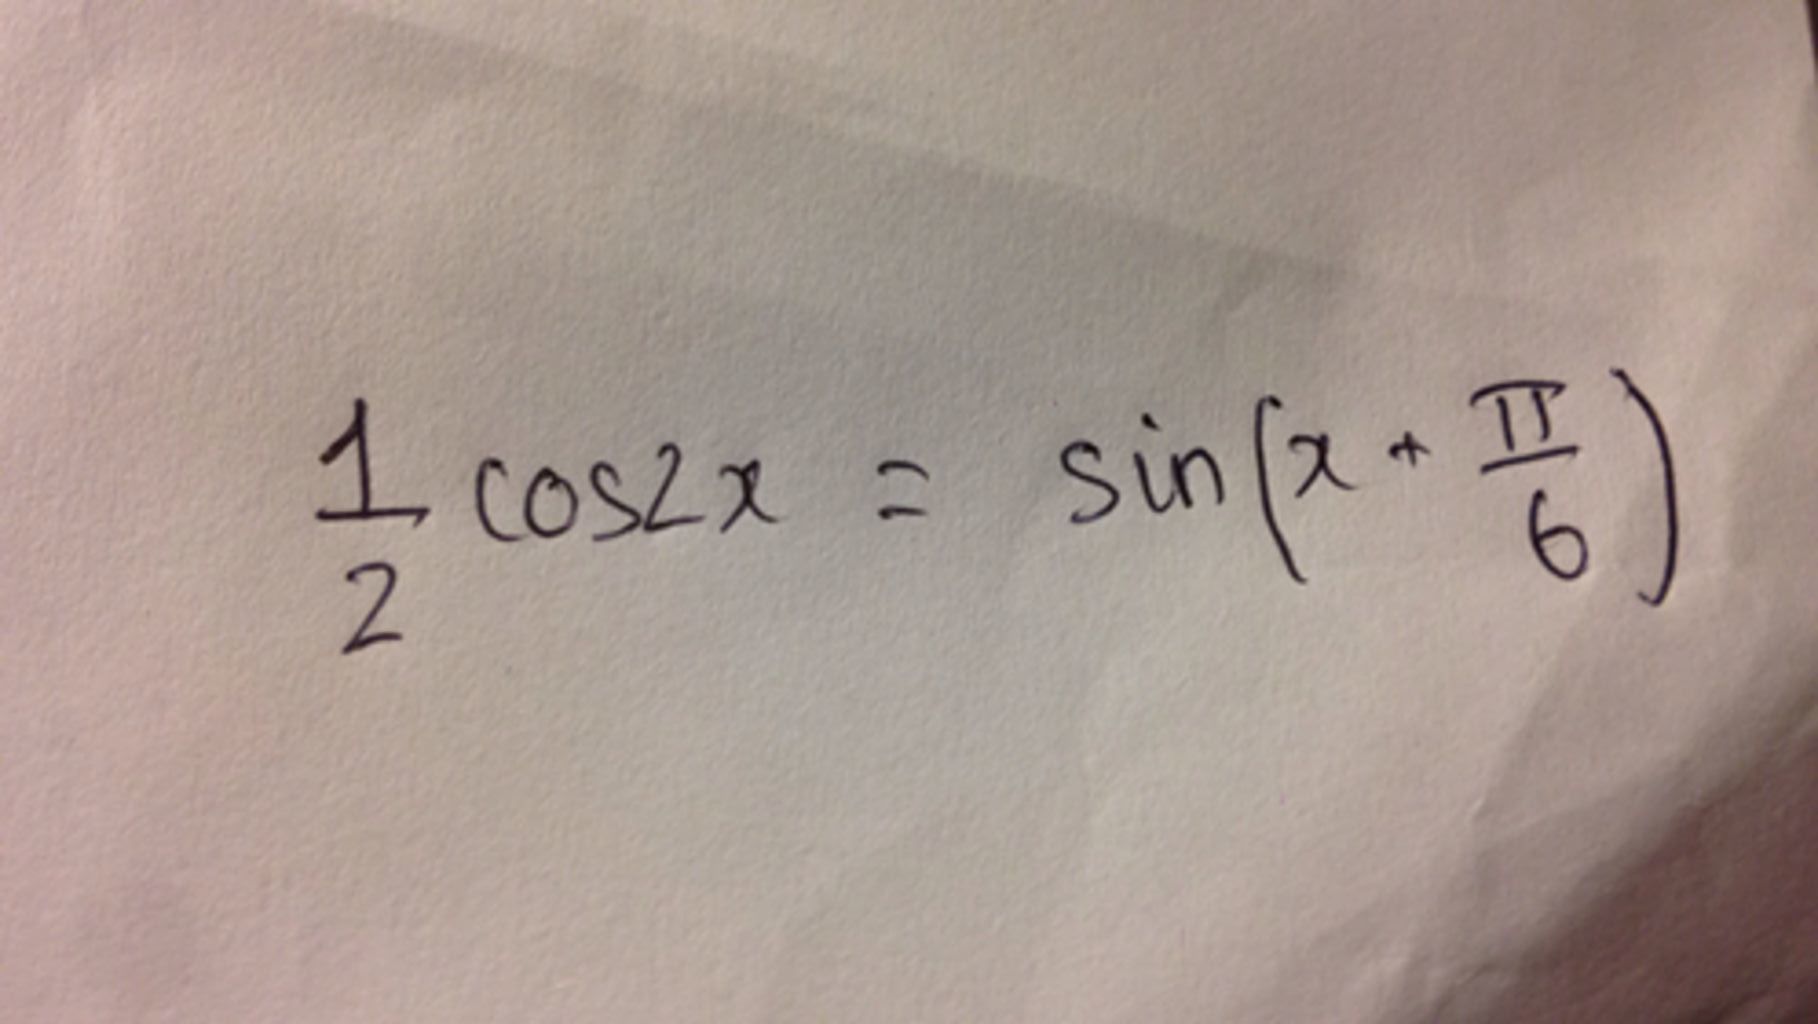 1/2 cos2x = sin(x + π/6)